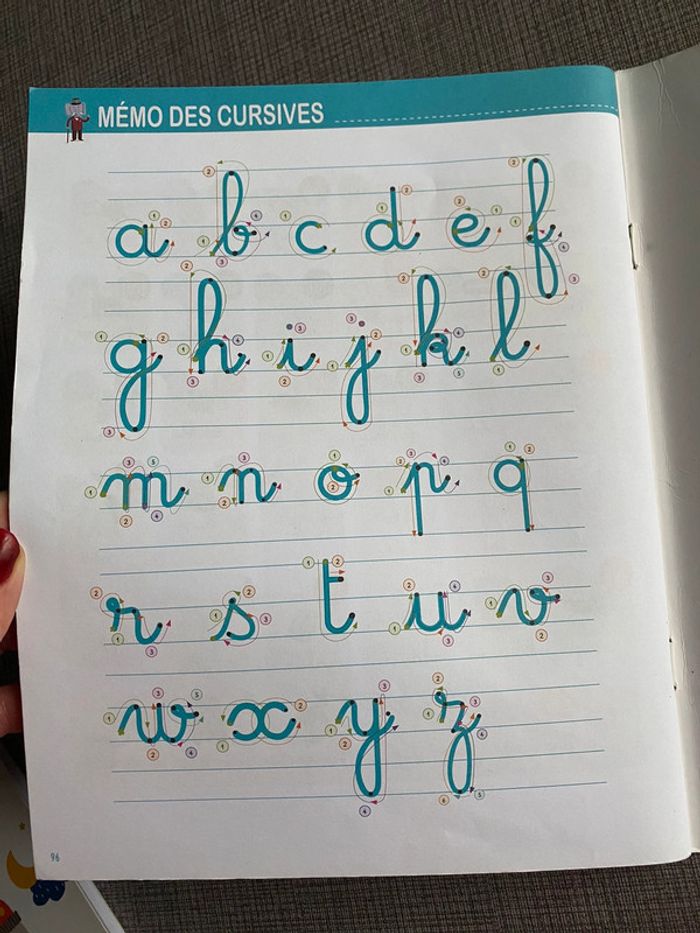 MÉMO DES CURSIVES
a b c d e f
g h i j k l
m n o p q
r s t u v
w x y z
96